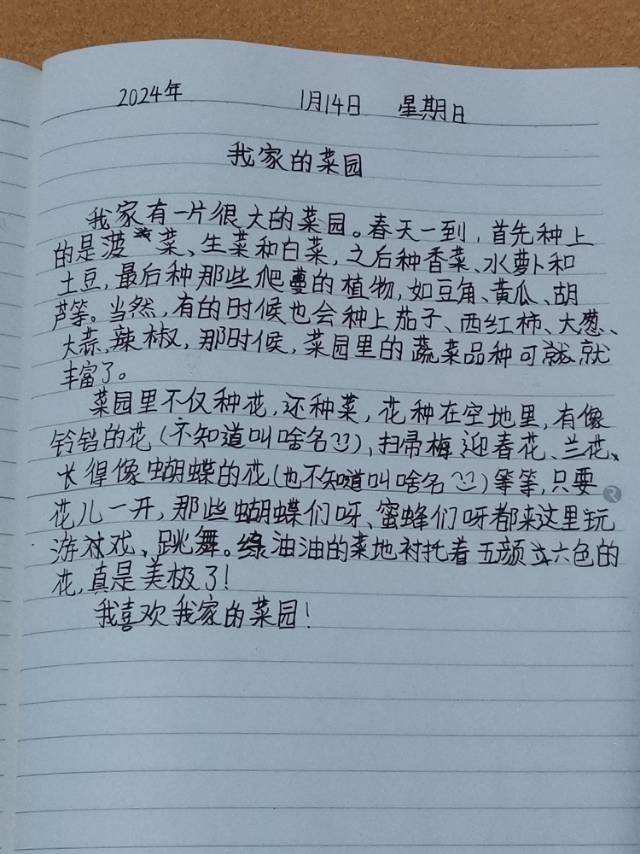 2024年 1月14日 星期日
我家的菜园
我家有一片很大的菜园。春天一到,首先种上
的是菠菜、生菜和白菜,之后种香菜、水萝卜和
土豆,最后种那些爬蔓的植物,如豆角、黄瓜、胡
芦等。当然,有的时候也会种上茄子、西红柿、大葱、
大蒜,辣椒,那时候,菜园里的蔬菜品种可就
丰富了。
菜园里不仅种花,还种菜,花种在空地里,有像
铃铛的花(不知道叫啥名),扫帚梅 迎春花、兰花、
长得像蝴蝶的花(也不知道叫啥名)等等,只要
花儿一开,那些蝴蝶们呀、蜜蜂们呀都来这里玩
游戏、跳舞。绿油油的菜地衬托着五颜六色的
花,真是美极了!
我喜欢我家的菜园!